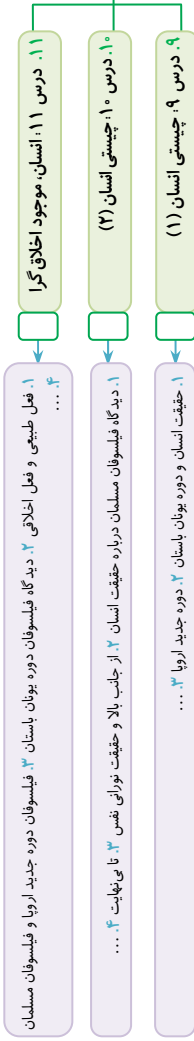 ۹. درس ۹: چیستی انسان (۱)
۱. حقیقت انسان و دوره یونان باستان ۲. دوره جدید اروپا ۳. ...
۱۰. درس ۱۰: چیستی انسان (۲)
۱. دیدگاه فیلسوفان مسلمان درباره حقیقت انسان ۲. از جانب بالا و حقیقت نورانی نفس ۳. تا بی‌نهایت ۴. ...
۱۱. درس ۱۱: انسان، موجود اخلاق گرا
۱. فعل طبیعی و فعل اخلاقی ۲. دیدگاه فیلسوفان دوره یونان باستان ۳. فیلسوفان دوره جدید اروپا و فیلسوفان مسلمان
۴. ...